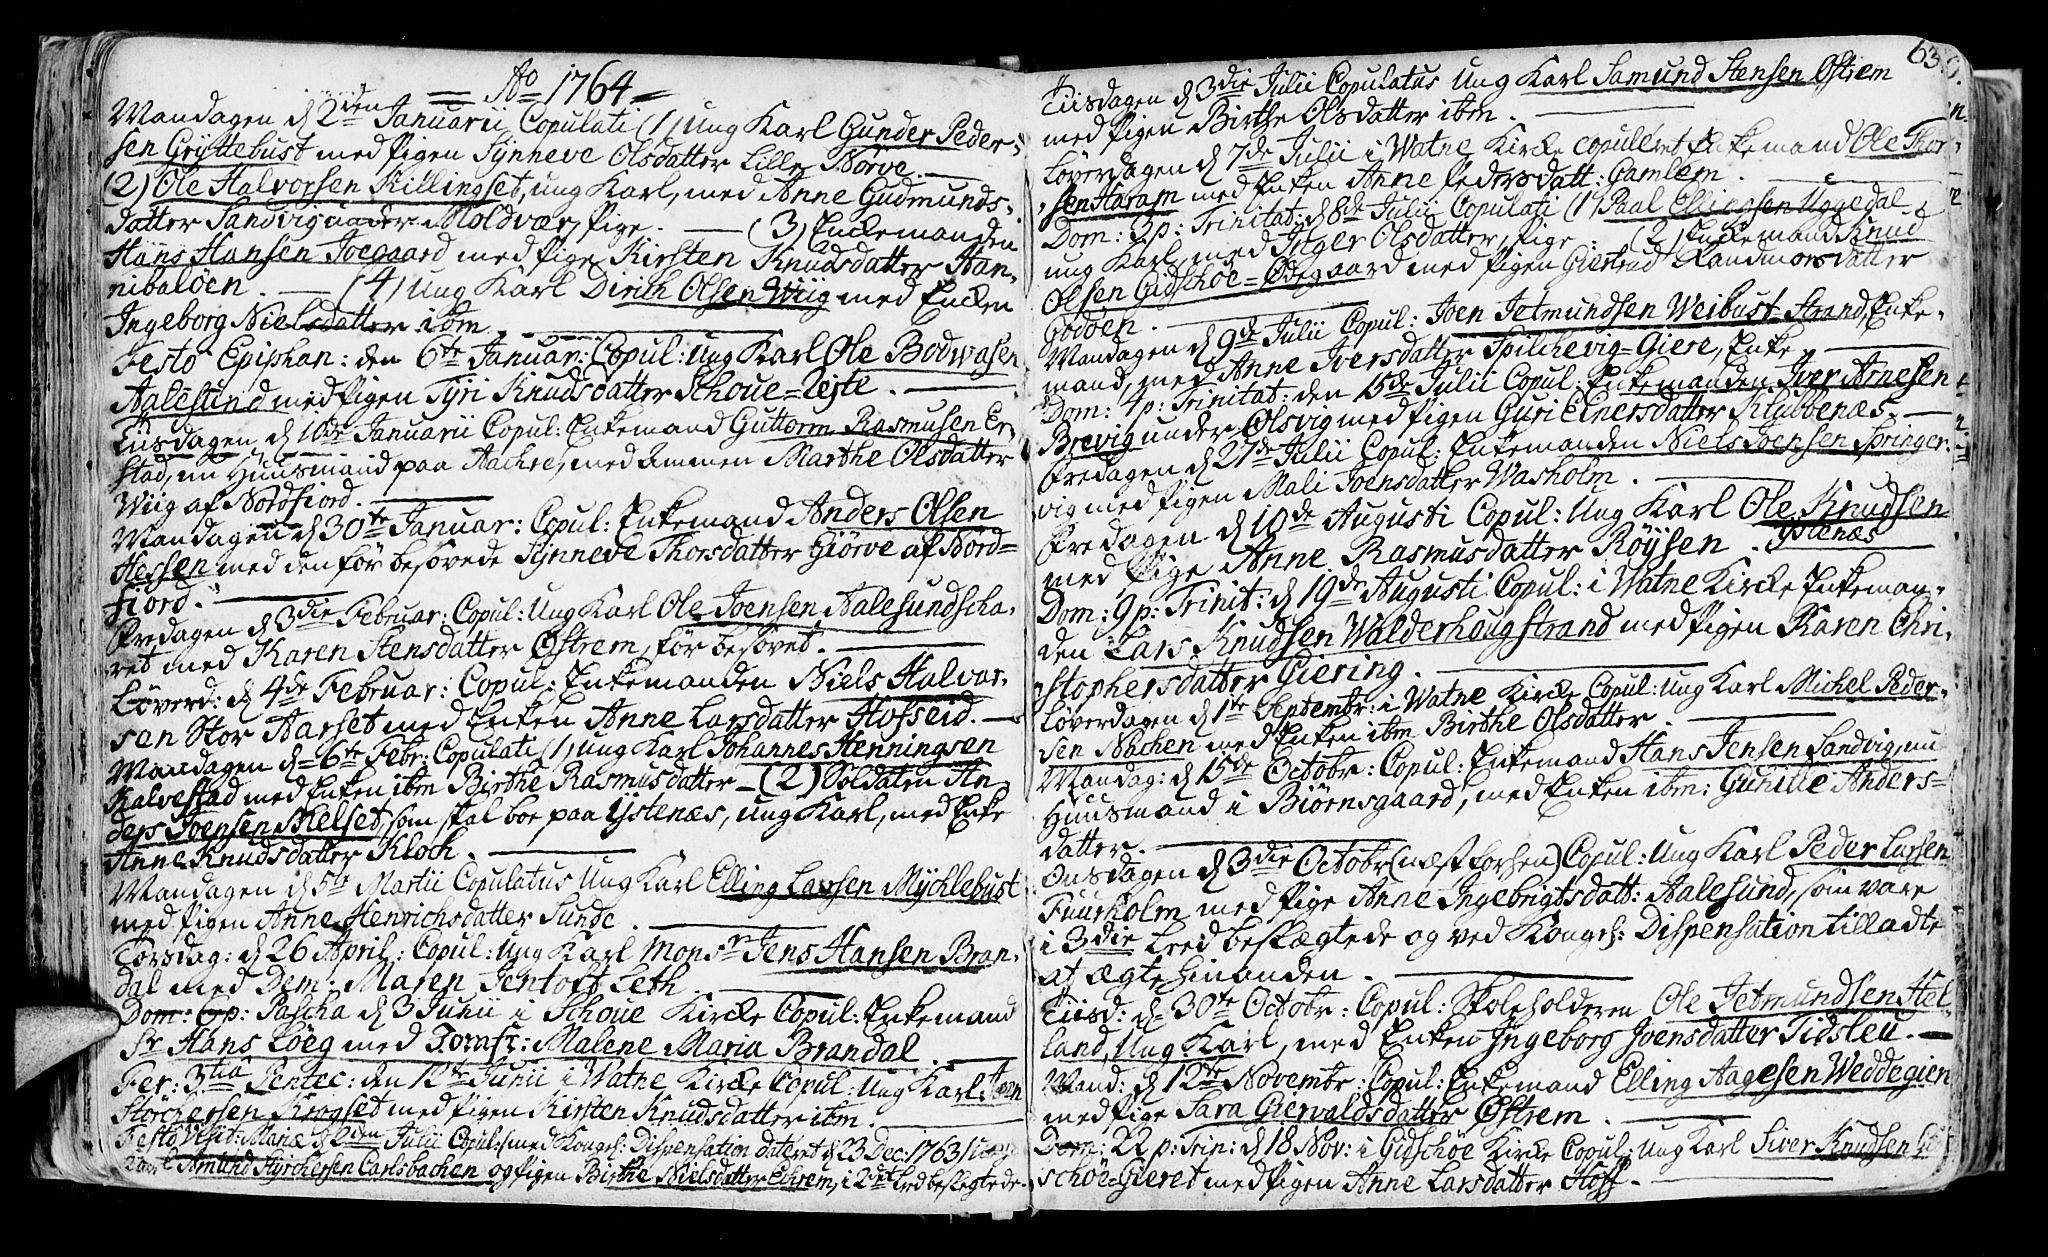 Ao 1764
Mandagen d 2den Januarii Copulati (1) ung Karl Gunder Peder-
sen Gryttebust med Pigen Synneve Olsdatter Lille Nørve.
(2) Ole Halvorsen Killingset, ung Karl, med Anne Gudmunds-
datter Sandvig under Moldvær, Pige. (3) Enckemanden
Hans Hansen Joegaard med Pige Kirsten Knudsdatter Han-
nibaløen. (4) Ung Karl Dirich Olsen Wiig med Encken
Ingeborg Nielsdatter ibm.
Festo Epiphan: den 6te Januar: Copul: ung Karl Ole Bodwasen
Aalesund med Pigen Tyri Knudsdatter Schoue=Tejte.
Tiisdagen d 10de Januarii Copul: Enkemand Guttorm Rasmusen Er-
stad, nu Huusmand paa Aachre, med Ammen Marthe Olsdatter
Wiig af Nordfiord.
Mandagen d 30te Januar: Copul: Enkemand Anders Olsen
Hessen med den før besovede Synneve Thorsdatter Giørve af Nord=
fiord.
Fredagen d 3die Februar: Copul: Ung Karl Ole Joensen Aalesundscha-
ret med Karen Stensdatter Østrem, før besovet.
Løverd: d 4de Februar: Copul: Enkemanden Niels Halvor-
sen Stor Aarset med Enken Anne Larsdatter Hofseid.
Mandagen d 6te Febr: Copulati (1) ung Karl Johannes Henningsen
Kalvestad med Enken ibm Birthe Rasmusdatter (2) Soldaten An
ders Joensen Nielset, som skal boe paa Ystenæs, ung Karl, med Enke
Anne Knudsdatter Kloch.
Mandagen d 5te Martii Copulatus Ung Karl Elling Larsen Mychlebust
med Pigen Anne Henrichsdatter Sunde.
Torsdag: d 26 April: Copul: Ung Karl Monsr Jens Hansen Bran-
dal med Dem: Maren Jentoft Leth.
Dom: 6 p: Pascha d 3 Junii i Schoue Kircke Copul: Enkemand
Sr Hans Løeg med Jomfr: Malene Maria Brandal.
Fer: 3tia Pentec: den 12te Junii i Watne Kircke Copul: Ung Karl
Storchersen Krogset med Pigen Kirsten Knudsdatter ibm.
Festo Visit: Mariæ d 2den Julii Copul: (med Kongel: Dispensation dateret d 23 Dec: 1763) ung
Karl Amund Styrchersen Carlsbachen og Pigen Birthe Nielsdatter Ehrem, i 2det Led beslegtede.
63.
Tiisdagen d 3die Julii Copulatus Ung Karl Samund Stensen Østrem
med Pigen Birthe Olsdatter ibm.
Løverdagen d 7de Julii i Watne Kircke copuleret Enkemand Ole Thor-
sen Haram med Enken Anne Pedersdatt: Gamlem.
Dom: 3 p: Trinitat: d 8de Julii Copulati (1) Paal Ellingsen Uggedal
ung Karl, med Inger Olsdatter, Pige. (2) Enkemand Knud
Olsen Gidschøe=Ødegaard med Pigen Giertrud Randmorsdatter
Godøen.
Mandagen d 9de Julii Copul: Joen Jetmundsen Weibust Strand, Enke-
mand, med Anne Iversdatter Spilchevig=Giere, Enke
Dom: 4 p: Trinitat: den 15de Julii Copul: Enkemanden Iver Arnesen
Brevig under Olsvig med Pigen Guri Einersdatter Klubbenæs.
Fredagen d 27de Julii Copul: Enkemanden Niels Joensen Springer-
vig med Pigen Mali Joensdatter Washolm.
Fredagen d 10de Augusti Copul: Ung Karl Ole Knudsen
Ystenæs
med Pige Anne Rasmusdatter Røysen.
Dom: 9 p: Trinit: d 19de Augusti Copul: i Watne Kircke Enkeman-
den Lars Knudsen Walderhougstrand med Pigen Karen Chri-
stophersdatter Giering.
Løverdagen d 1te Septembr: i Watne Kircke Copul: Ung Karl Michel Peder-
sen Nachen med Enken ibm Birthe Olsdatter.
Mandag: d 15de Octobr: Copul: Enkemand Hans Jensen Sandvig, nu
Huusmand i Biørnsgaard, med Enken ibm: Gunille Anders-
datter.
Onsdagen d 3die Octobr (næst forhen) Copul: Ung Karl Peder Larsen
Fuurholm med Pige Anne Ingebrigtsdatt: Aalesund, som vare
i 3die Leed beslægtede og ved Kongel: Dispensation tilladte
at ægte hinanden.
Tiisd: d 30te Octobr: Copul: Skoleholderen Ole Jetmundsen Hel
land, Ung Karl, med Enken Ingeborg Joensdatter Tidsleu.
Mand: d 12te Novembr: Copul: Enkemand Elling Aagesen Weddegien
med Pige Sara Giervaldsdatter Østrem.
Dom: 22 p: Trin: d 18 Nov: i Gidschøe Kircke Copul: ung Karl Siver Knudsen
schøe=Gieret med Pigen Anne Larsdatter Hoff.